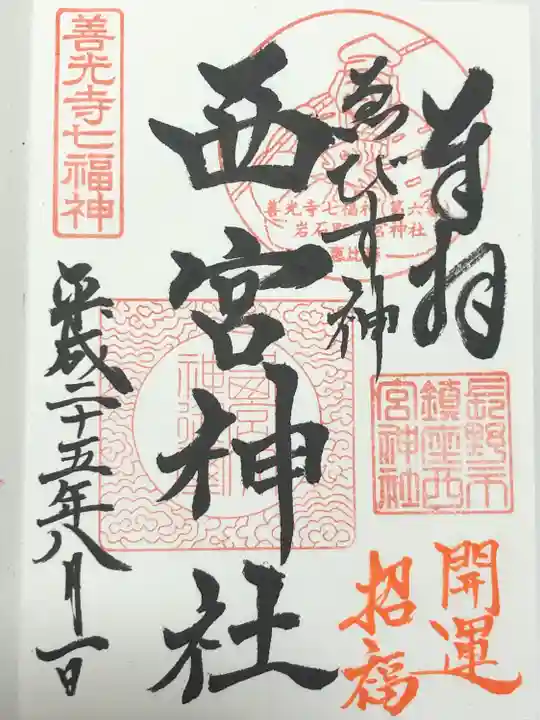 奉拝
開運
招福
ゑびす神
西宮神社
善光寺七福神
平成二十五年八月一日
善光寺七福神 第六番
岩石町西宮神社
恵比寿
長野市
鎮座西
宮神社